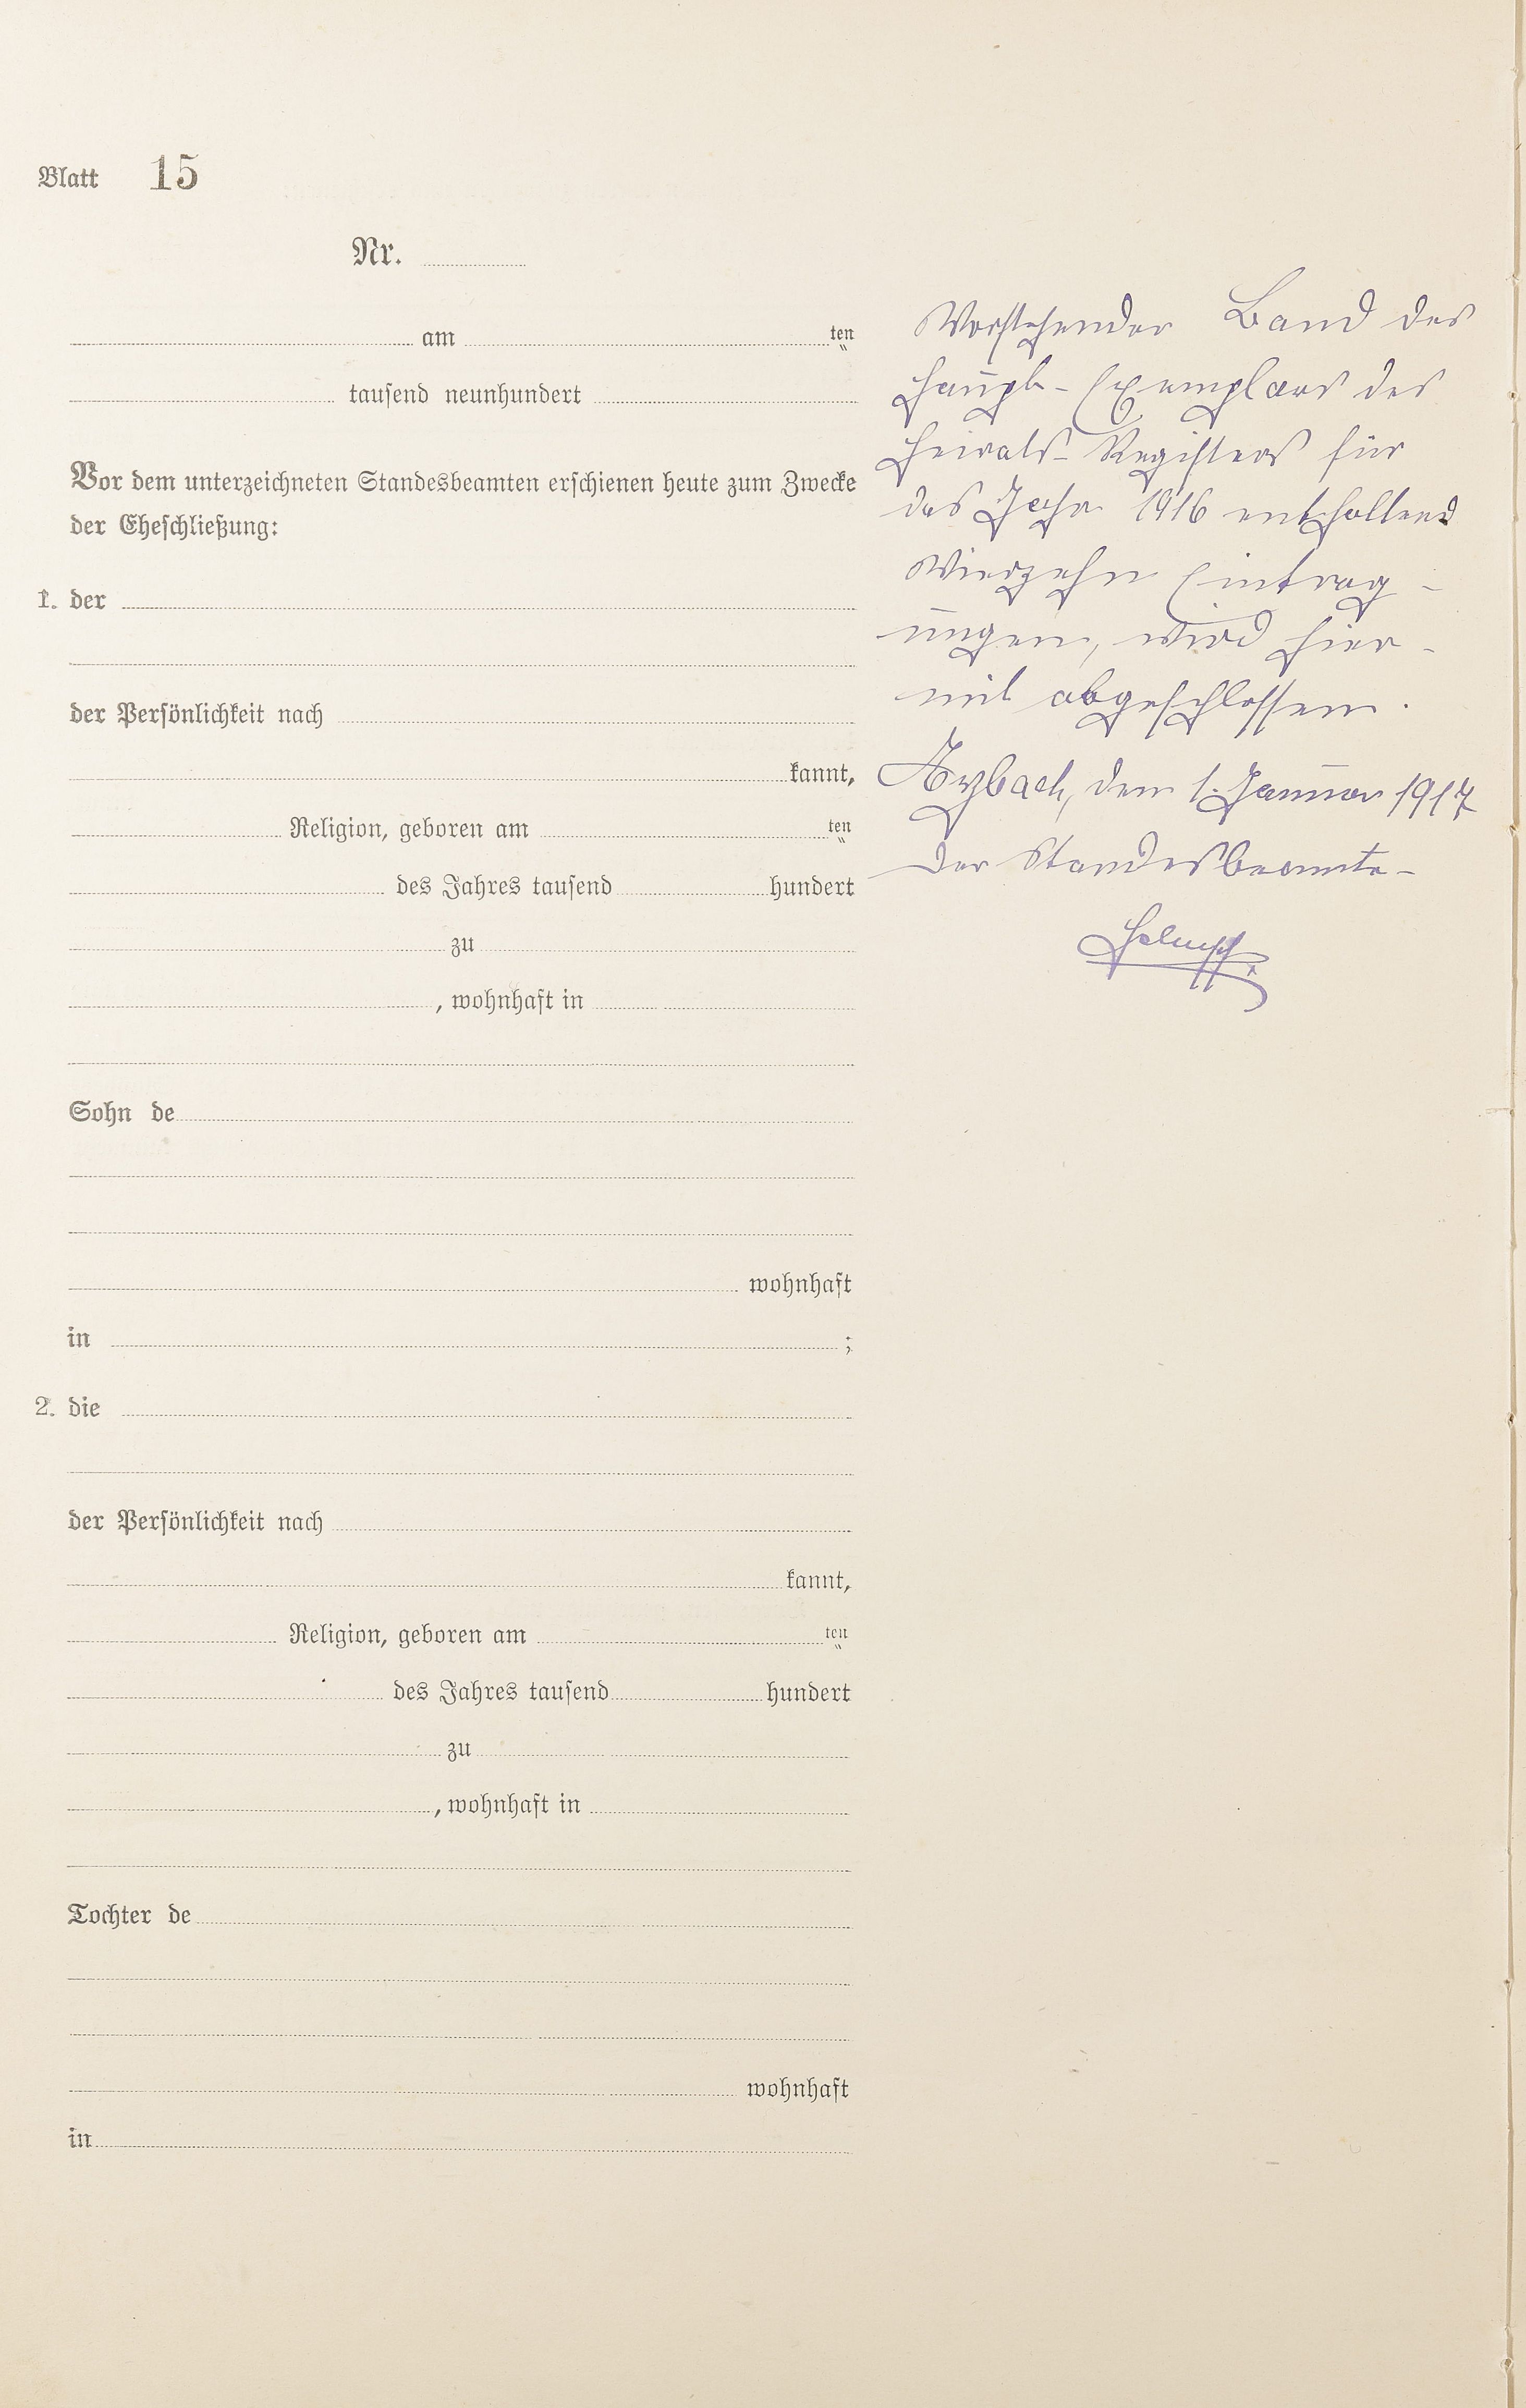 Blatt 15
Nr.
am ten
tausend neunhundert
Vor dem unterzeichneten Standesbeamten erschienen heute zum Zwecke
der Eheschließung:
1. der
der Persönlichkeit nach
kannt,
Religion, geboren am ten
des Jahres tausend hundert
zu
, wohnhaft in
Sohn de
wohnhaft
in ;
2. die
der Persönlichkeit nach
kannt,
Religion, geboren am ten
des Jahres tausend hundert
zu
, wohnhaft in
Tochter de
wohnhaft
in
Vorstehender Band des
Haupt-Exemplars des
Heirats-Registers für
das Jahr 1916 enthaltend
vierzehn Eintrag-
ungen, wird hier-
mit abgeschlossen.
Arzbach, den 1. Januar 1917
Der Standesbeamte